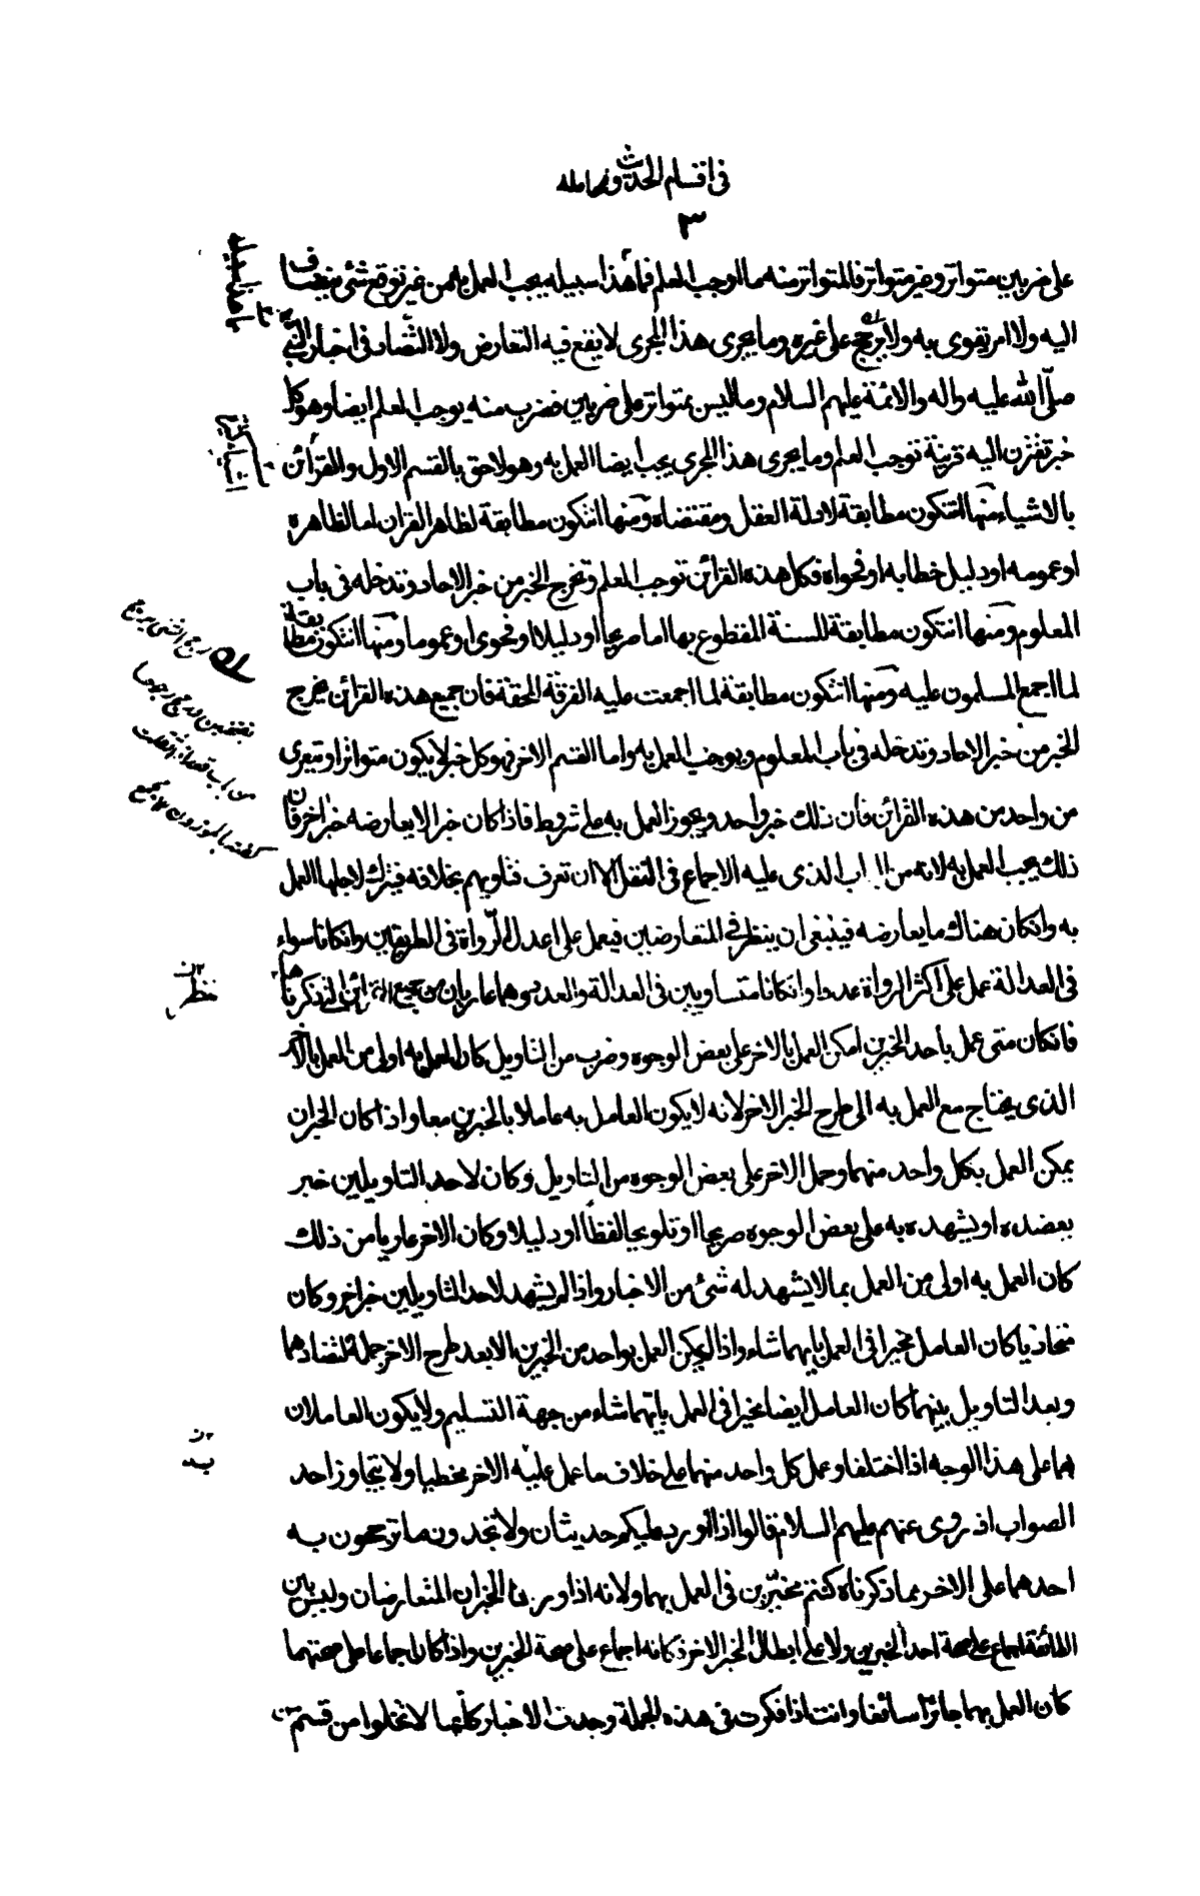 في اقسام الحديث ومحامله
٣
على ضربين متواتر وغير متواتر فالمتواتر منه ما اوجب العلم فما هذا سبيله يجب العمل به من غير توقع شئ ينضاف
اليه ولا امر يقوى به ولا يرجح على غيره وما يجرى هذا المجرى لا يقع فيه التعارض ولا التضاد في اخبار النبي
صلى الله عليه واله والائمة عليهم السلام وما ليس بمتواتر على ضربين فضرب منه يوجب العلم ايضا وهو كل
خبر تقترن اليه قرينة توجب العلم وما يجرى هذا المجرى يجب ايضا العمل به وهو لاحق بالقسم الاول والقرائن
بالاشياء منها ان تكون مطابقة لادلة العقل ومقتضاه ومنها ان تكون مطابقة لظاهر القران اما لظاهره
او عمومه او دليل خطابه او فحواه فكل هذه القرائن توجب العلم وتخرج الخبر من خبر الاحاد وتدخله في باب
المعلوم ومنها ان تكون مطابقة للسنة المقطوع بها اما صريحا او دليلا او فحوى او عموما ومنها ان تكون مطابقة
لما اجمع المسلمون عليه ومنها ان تكون مطابقة لما اجمعت عليه الفرقة المحقة فان جميع هذه القرائن يخرج
الخبر من خبر الاحاد وتدخله في باب المعلوم ويوجب العمل به واما القسم الاخر فهو كل خبر لا يكون متواترا ويتعرى
من واحد من هذه القرائن فان ذلك خبر واحد ويجوز العمل به على شروط فاذا كان خبر لا يعارضه خبر اخر فان
ذلك يجب العمل به لانه من الباب الذى عليه الاجماع في النقل الا ان تعرف فتاويهم بخلافه فيترك لاجلها العمل
به وان كان هناك ما يعارضه فينبغي ان ينظر في المتعارضين فيعمل على اعدل الرواة في الطريقين وان كانا سواء
في العدالة عمل على اكثر الرواة عددا وان كانا متساويين في العدالة والعدد وهما عاريان من جميع القرائن التي ذكرناها
فان كان متى عمل باحد الخبرين امكن العمل بالاخر على بعض الوجوه وضرب من التاويل كان العمل به اولى من العمل بالاخر
الذى يحتاج مع العمل به الى طرح الخبر الاخر لانه لا يكون العامل به عاملا بالخبرين معا واذا كان الخبران
يمكن العمل بكل واحد منهما وحمل الاخر على بعض الوجوه من التاويل وكان لاحد التاويلين خبر
يعضده او يشهد به على بعض الوجوه صريحا او تلويحا لفظا او دليلا وكان الاخر عاريا من ذلك
كان العمل به اولى من العمل بما لا يشهد له شئ من الاخبار واذا لم يشهد لاحد التاويلين خبر اخر وكان
متحاذيا كان العامل مخيرا في العمل بايهما شاء واذا لم يمكن العمل بواحد من الخبرين الا بعد طرح الاخر جملة لتضادهما
وبعد التاويل بينهما كان العامل ايضا مخيرا في العمل بايهما شاء من جهة التسليم ولا يكون العاملان
هما على هذا الوجه اذا اختلفا وعمل كل واحد منهما على خلاف ما عمل عليه الاخر مخطيا ولا متجاوزا حد
الصواب اذ روى عنهم عليهم السلام قالوا اذا ورد عليكم حديثان ولا تجدون ما ترجحون به
احدهما على الاخر بما ذكرناه كنتم مخيرين في العمل بهما ولانه اذا ورد الخبران المتعارضان وليس بين
الطائفة اجماع على صحة احد الخبرين ولا على ابطال الخبر الاخر فكانه اجماع على صحة الخبرين واذا كان اجماعا على صحتهما
كان العمل بهما جائزا سائغا وانت اذا فكرت في هذه الجملة وجدت الاخبار كلها لا تخلوا من قسم